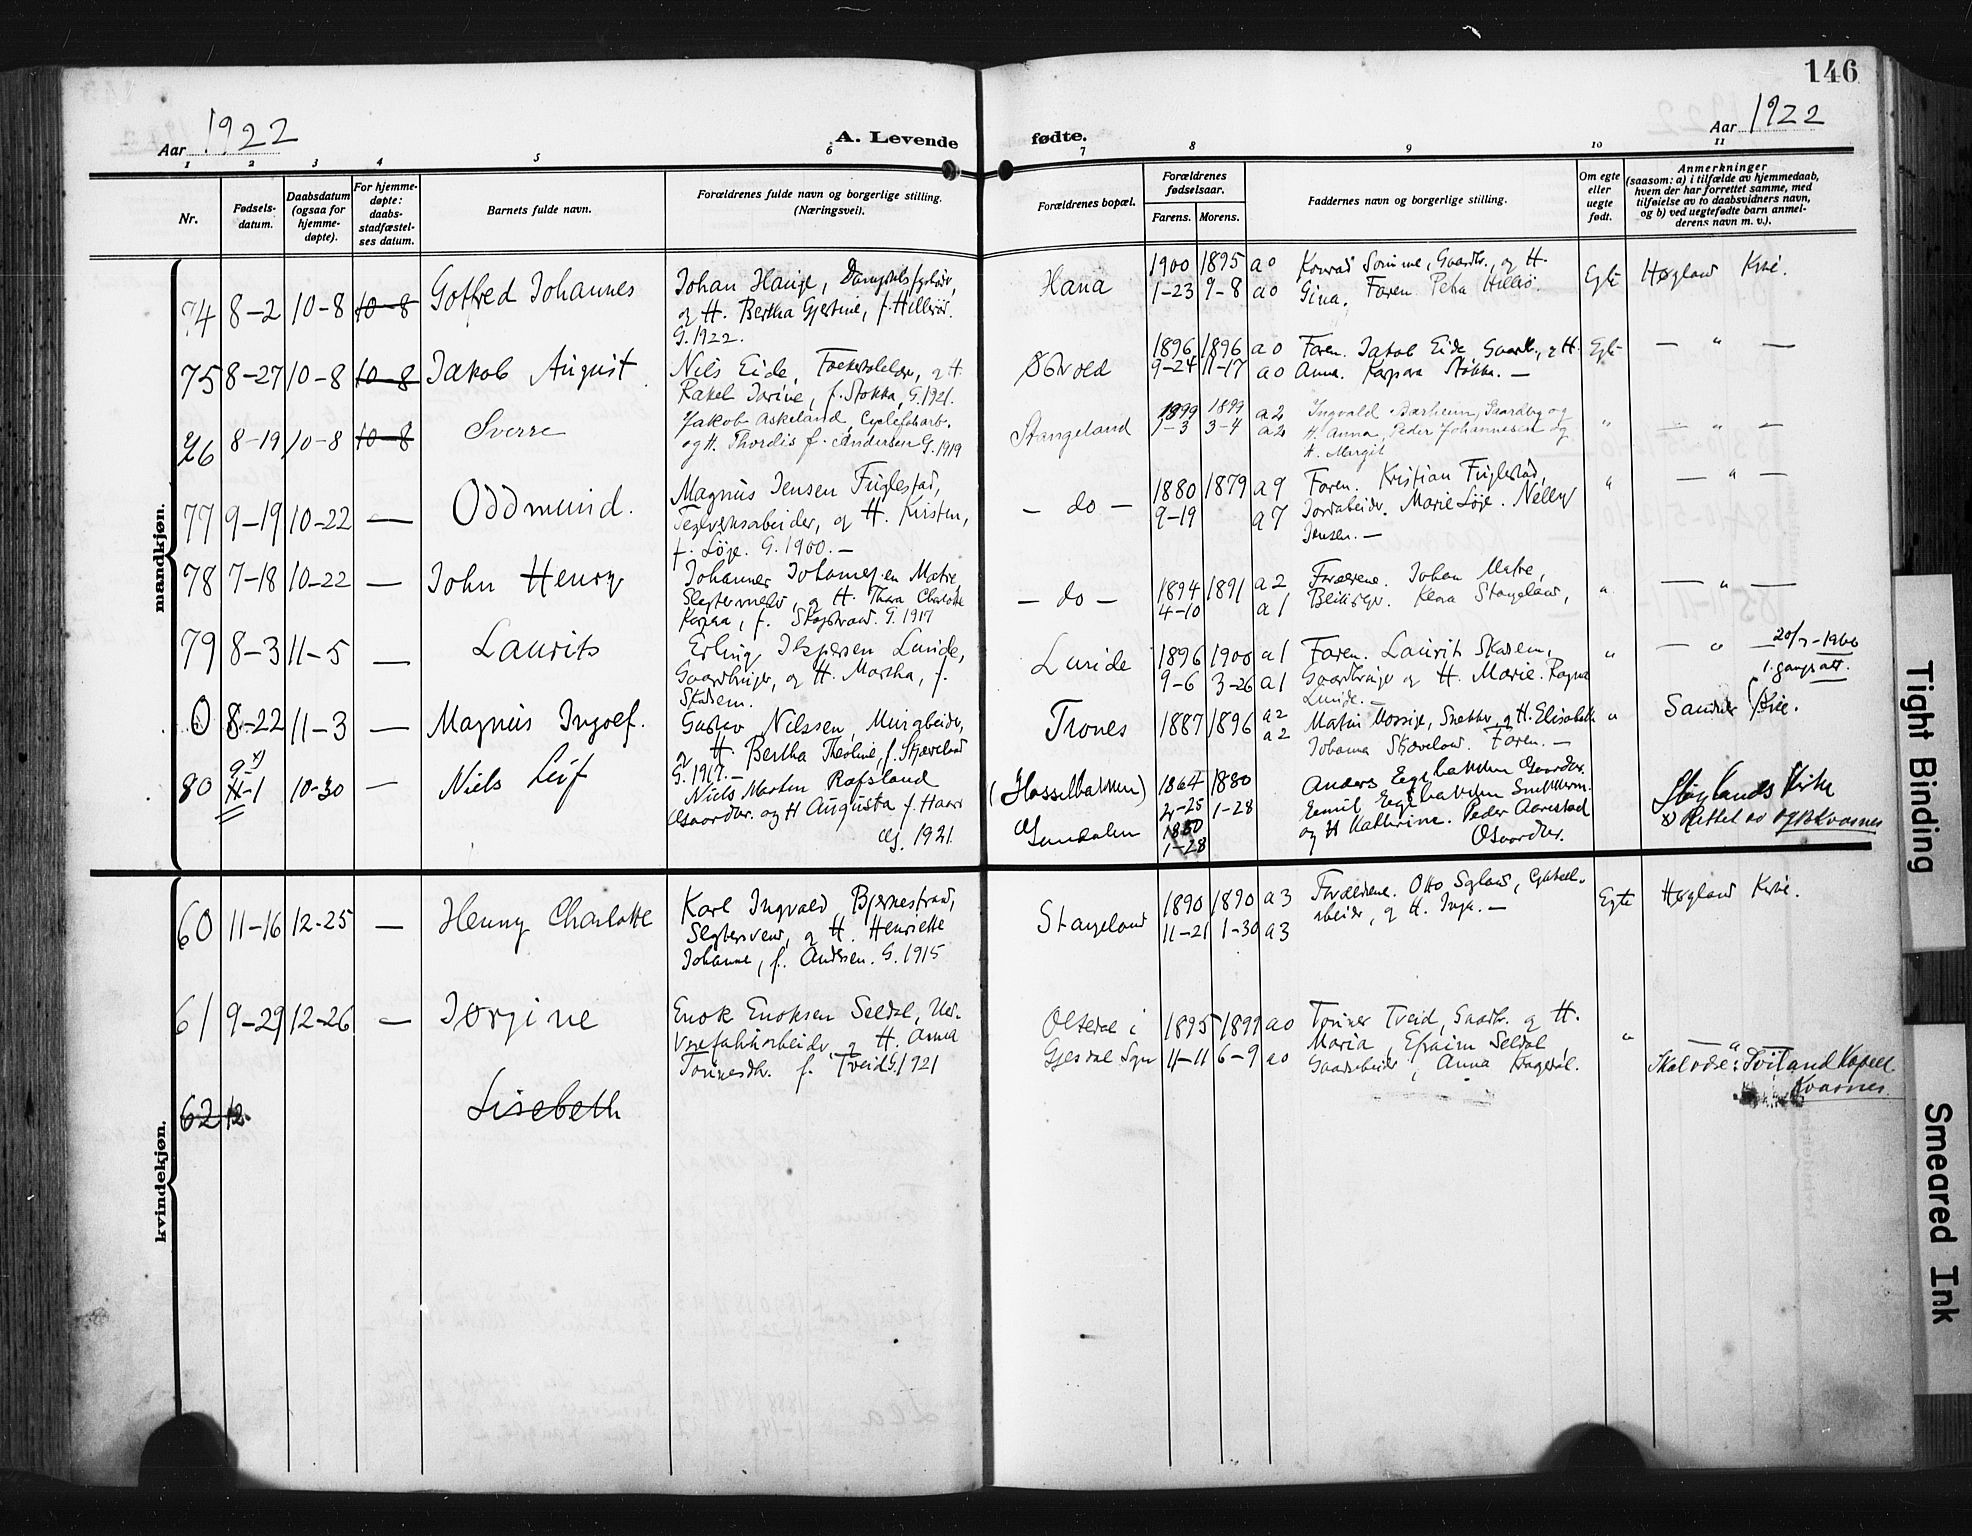 146
Aar 1922
A. Levende
fødte.
Aar 1922
1 2 3 4 5 6 7 8 9 10 11
Nr.
Fødsels-
datum.
Daabsdatum
(ogsaa for
hjemme-
døpte).
For hjemme-
døpte:
daabs-
stadfæstel-
ses datum.
Barnets fulde navn.
Forældrenes fulde navn og borgerlige stilling.
(Næringsvei).
Forældrenes bopæl.
Forældrenes
fødselsaar.
Farens. Morens.
Faddernes navn og borgerlige stilling.
Om egte
eller
uegte
født.
Anmerkninger
(saasom: a) i tilfælde av hjemmedaab,
hvem der har forrettet samme, med
tilføielse av to daabsvidners navn,
og b) ved uegtefødte barn anmel-
derens navn m. v.).
mandkjøn.
74 8-2 10-8 10-8 Gotfred Johannes
Johan Hauge,
og H. Bertha Gjertine, f. Hillesø.
G. 1922.
Hana
1900 1895 a0
1-23 9-8 a0
Konrad Somme, Gaardbr., og H.
Gina. Faren. Petra Hillesø.
Egte Høyland Kirke.
75 8-27 10-8 10-8 Jakob August
Nils Eide, og H.
Rakel Jorine, f. Stokka, G. 1921.
1896 1896 a0
9-24 11-17 a0
Faren. Jakob Eide, Gaardb., og H.
Anna. Kaspara Stokka. —
Egte — " —
76 8-19 10-8 10-8 Sverre
Jakob Askeland, Cyclefabarb.
og H. Thordis f. Andersen G. 1919
Stangeland
1899 1899 a2
7-3 3-4 a2
Ingvald Aarheim, Gaardbr. og
H. Anna, Peder Johannesen og
H. Margit
" — " —
77 9-19 10-22 — Oddmund.
Magnus Jensen Fuglestad,
Teglverksarbeider, og H. Kirsten,
f. Løge. G. 1900. —
— do —
1880 1879 a9
9-19 a7
Faren. Kristian Fuglestad,
Jordarbeider. Marie Løge. Nelly
Jensen. —
" — " —
78 7-18 10-22 — John Henry
Johannes Johannesen Matre,
og H. Thora Charlotte
f. G. 1917
— do —
1894 1891 a2
4-10 a1
Forældrene. Johan Matre,
Klara Stangeland,
" — " —
79 8-3 11-5 — Laurits
Erling Jespersen Lunde,
Gaardbruger, og H. Martha, f.
Skadsem.
Lunde
1896 1900 a1
9-6 3-26 a1
Faren. Laurits Skadsem,
Gaardbruger og H. Marie. Ragna
Lunde. —
" — " — 20/7-1966
1. gangs att.
0 8-22 11-3 — Magnus Ingolf.
Gustav Nilssen, Murarbeider,
og H. Bertha Theoline, f. Skjæveland
G. 1917. —
Trones
1887 1896 a2
a2
Martin Mossige, Snekker og H. Elisabeth
Johanna Skjæveland. Faren. —
" Sandnes Kirke.
80 9 x) 11-1 10-30 — Niels Leif
Niels Morten Rafsland
Gaardbr. og H Augusta f. Haar
G. 1921.
(Hasselbakken)
Gandalen
1864 1880
2-25 1-28
1880
1-28
Anders Eegebakken Gaardbr.
Emil Eegebakken Snekkerm.
og H Kathrine. Peder Aarestad
Gaardbr.
Høylands Kirke
x) Rettet av OgBKvasnes
kvindekjøn.
60 11-16 12-25 — Henny Charlotte
Karl Ingvald Bjernestrand,
Slagtersvend, og H. Henriette
Johanne, f. Andersen. G. 1915
Stangeland
1890 1890 a3
11-21 1-30 a3
Forældrene. Otto
arbeider, og H. Inga. —
Egte Høyland Kirke.
61 9-29 12-26 — Jorgine
Enok Enoksen Seldal, Uld-
varefabrikarbeider og H. Anna
Tonnesdtr. f. Tveid G. 1921
Oltedal i
Gjesdal Sgn
1895 1899 a0
11-11 6-9 a0
Tonnes Tveid, Gaardbr. og H.
Maria, Efraim Seldal
Gaardarbeider, Anna
" — " —
Skal være: Sviland Kapell.
Kvasnes.
62 12. Lisebeth
Tight Binding
Smeared Ink